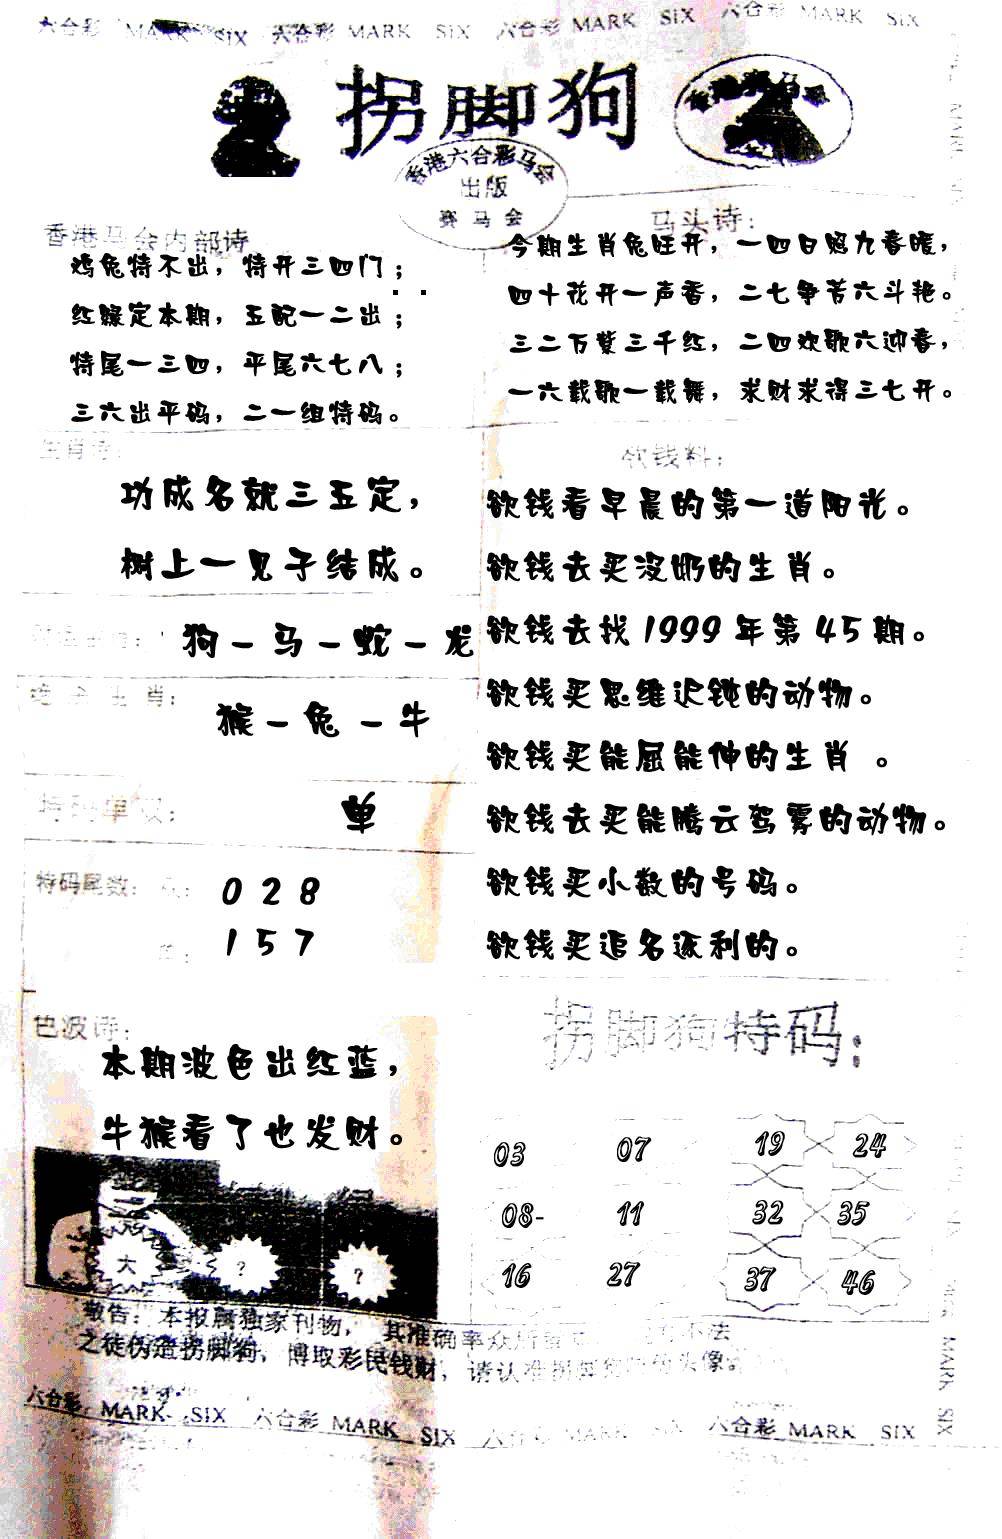 六合彩 MARK SIX 六合彩 MARK SIX 六合彩 MARK SIX 六合彩 MARK SIX
拐脚狗
香港六合彩马会
出版
赛马会
香港马会内部诗
鸡兔特不出，特开三四门；
红绿定本期，五配一二出；
特尾一三四，平尾六七八；
三六出平码，二一组特码。
马头诗：
今期生肖兔旺开，一四日照九春暖，
四十花开一声香，二七争苦六斗艳。
三二万紫三千红，二四欢歌六迎春，
一六载歌一载舞，求财求得三七开。
生肖诗：
功成名就三五定，
树上一见子结成。
狗－马－蛇－龙
生肖：
猴－兔－牛
特码单双：
单
特码尾数：
0 2 8
1 5 7
色波诗：
本期波色出红蓝，
牛猴看了也发财。
大 ? ?
欲钱料：
欲钱看早晨的第一道阳光。
欲钱去买没奶的生肖。
欲钱去找1999年第45期。
欲钱买思维迟钝的动物。
欲钱买能屈能伸的生肖 。
欲钱去买能腾云驾雾的动物。
欲钱买小数的号码。
欲钱买追名逐利的。
拐脚狗特码：
03 07 19 24
08- 11 32 35
16 27 37 46
敬告：本报属独家刊物，其准确率众所 不法
之徒伪造拐脚狗，博取彩民钱财，请认准拐脚狗 头像。
六合彩 MARK SIX 六合彩 MARK SIX 六合彩 MARK SIX 六合彩 MARK SIX
MARK SIX